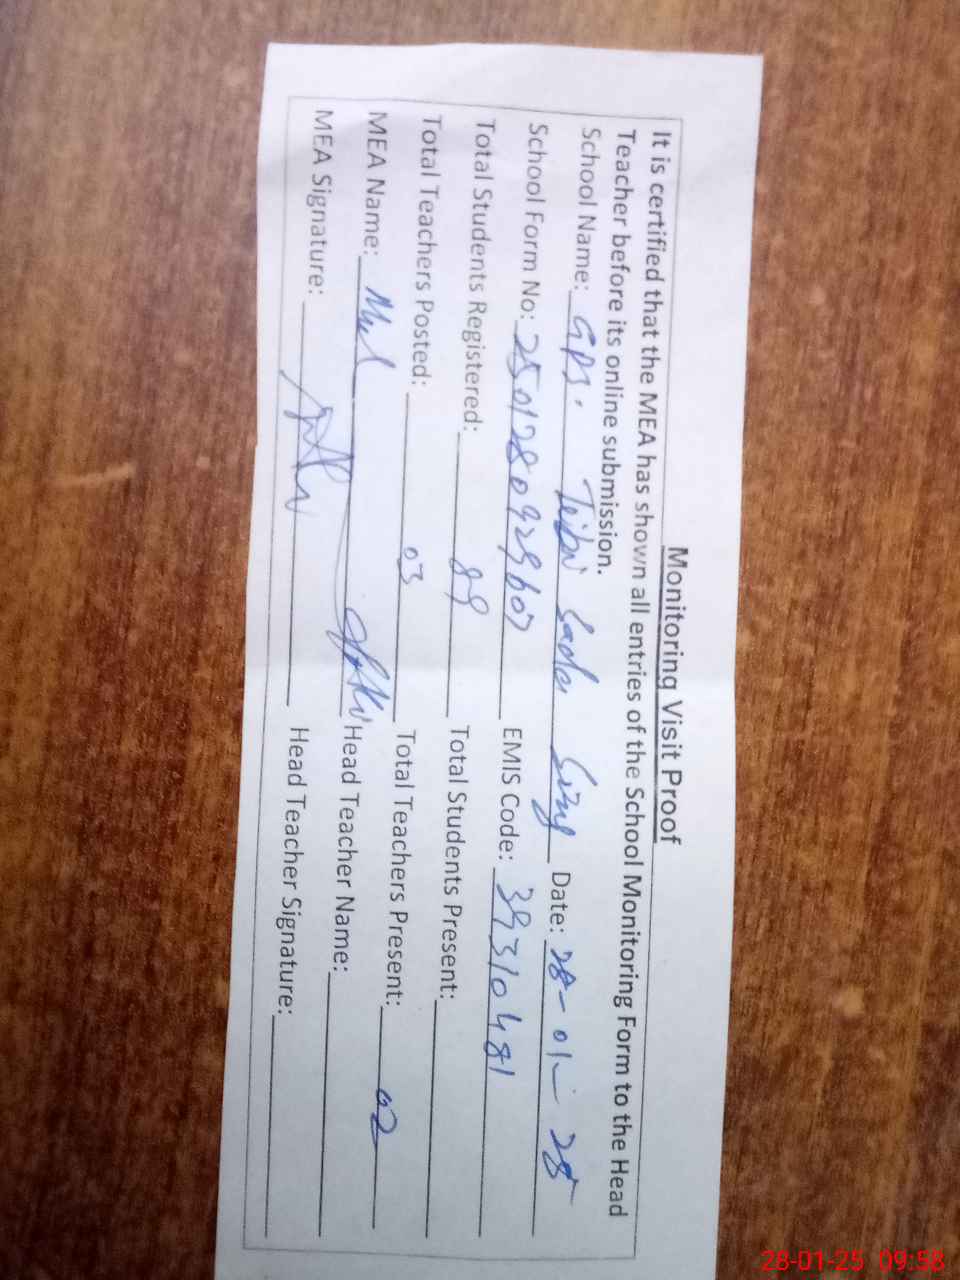 Monitoring Visit Proof
It is certified that the MEA has shown all entries of the School Monitoring Form to the Head
Teacher before its online submission.
School Name: GPS. Date: 28-01-
School Form No: EMIS Code: 39310481
Total Students Registered: 89 Total Students Present:
Total Teachers Posted: 03 Total Teachers Present: 02
MEA Name: Head Teacher Name:
MEA Signature: Head Teacher Signature:
28-01-25 09:58